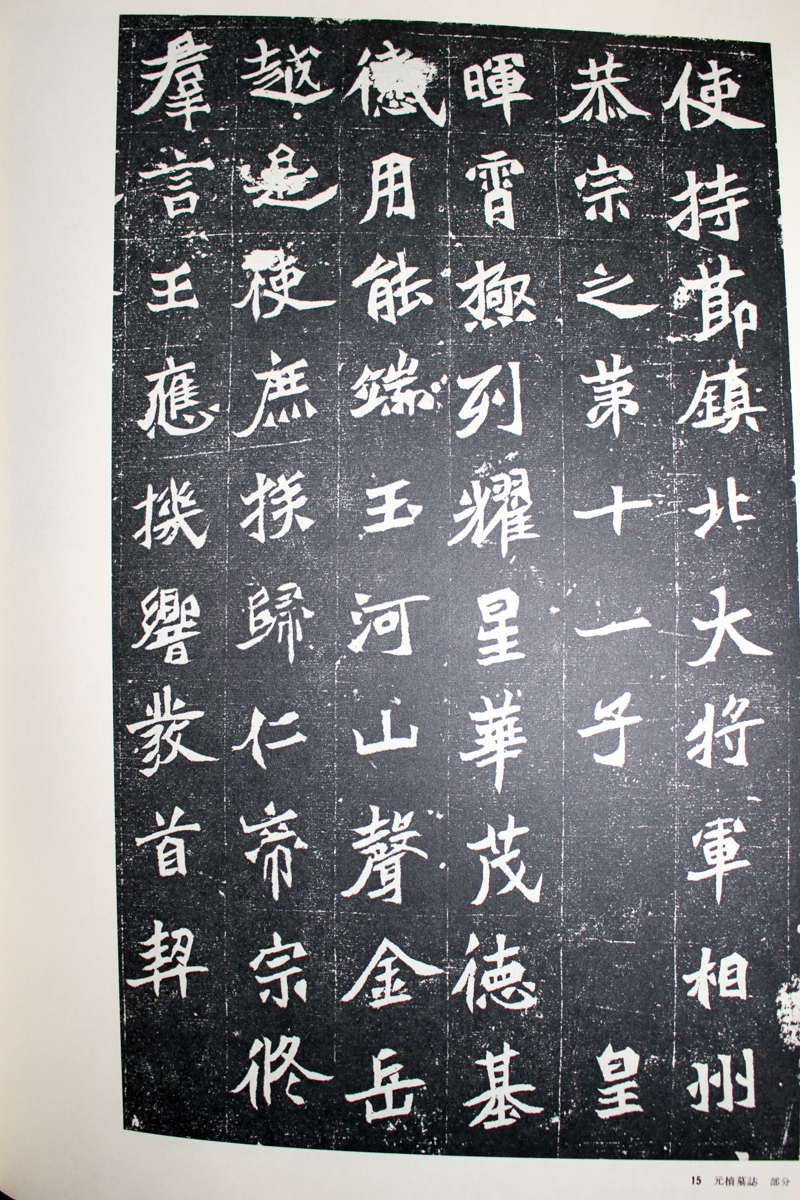 使持莭鎮北大將軍相州
恭宗之苐十一子 皇
暉霄極列耀星華茂德基
儀用能端玉河山聲金岳
越是使庶族歸仁帝宗攸
羣言王應機響發首契
15 元楨墓誌 部分